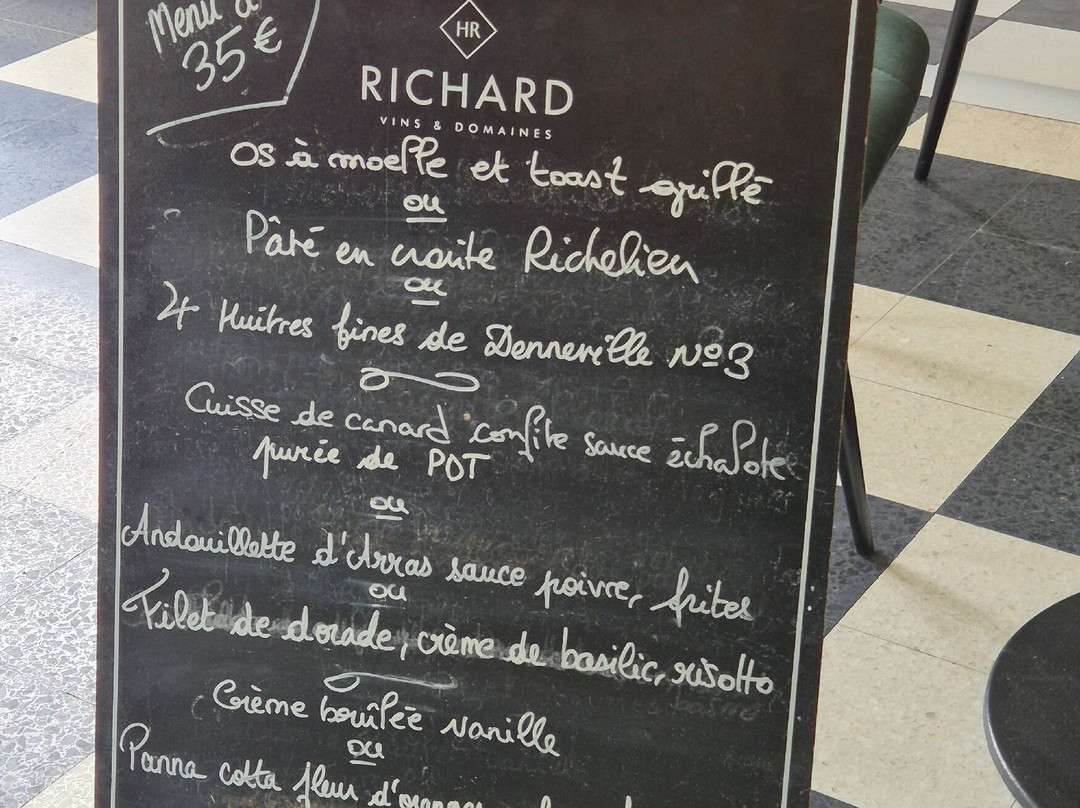 Menu à
35€
HR
RICHARD
VINS & DOMAINES
Os à moelle et toast grillé
ou
Pâté en croûte Richelieu
ou
4 Huîtres fines de Denneville N°3
Cuisse de canard confite sauce échalote
purée de PDT
ou
Andouillette d'Arras sauce poivre, frites
ou
Filet de dorade, crème de basilic, risotto
Crème brûlée vanille
ou
Panna cotta fleur d'oranger